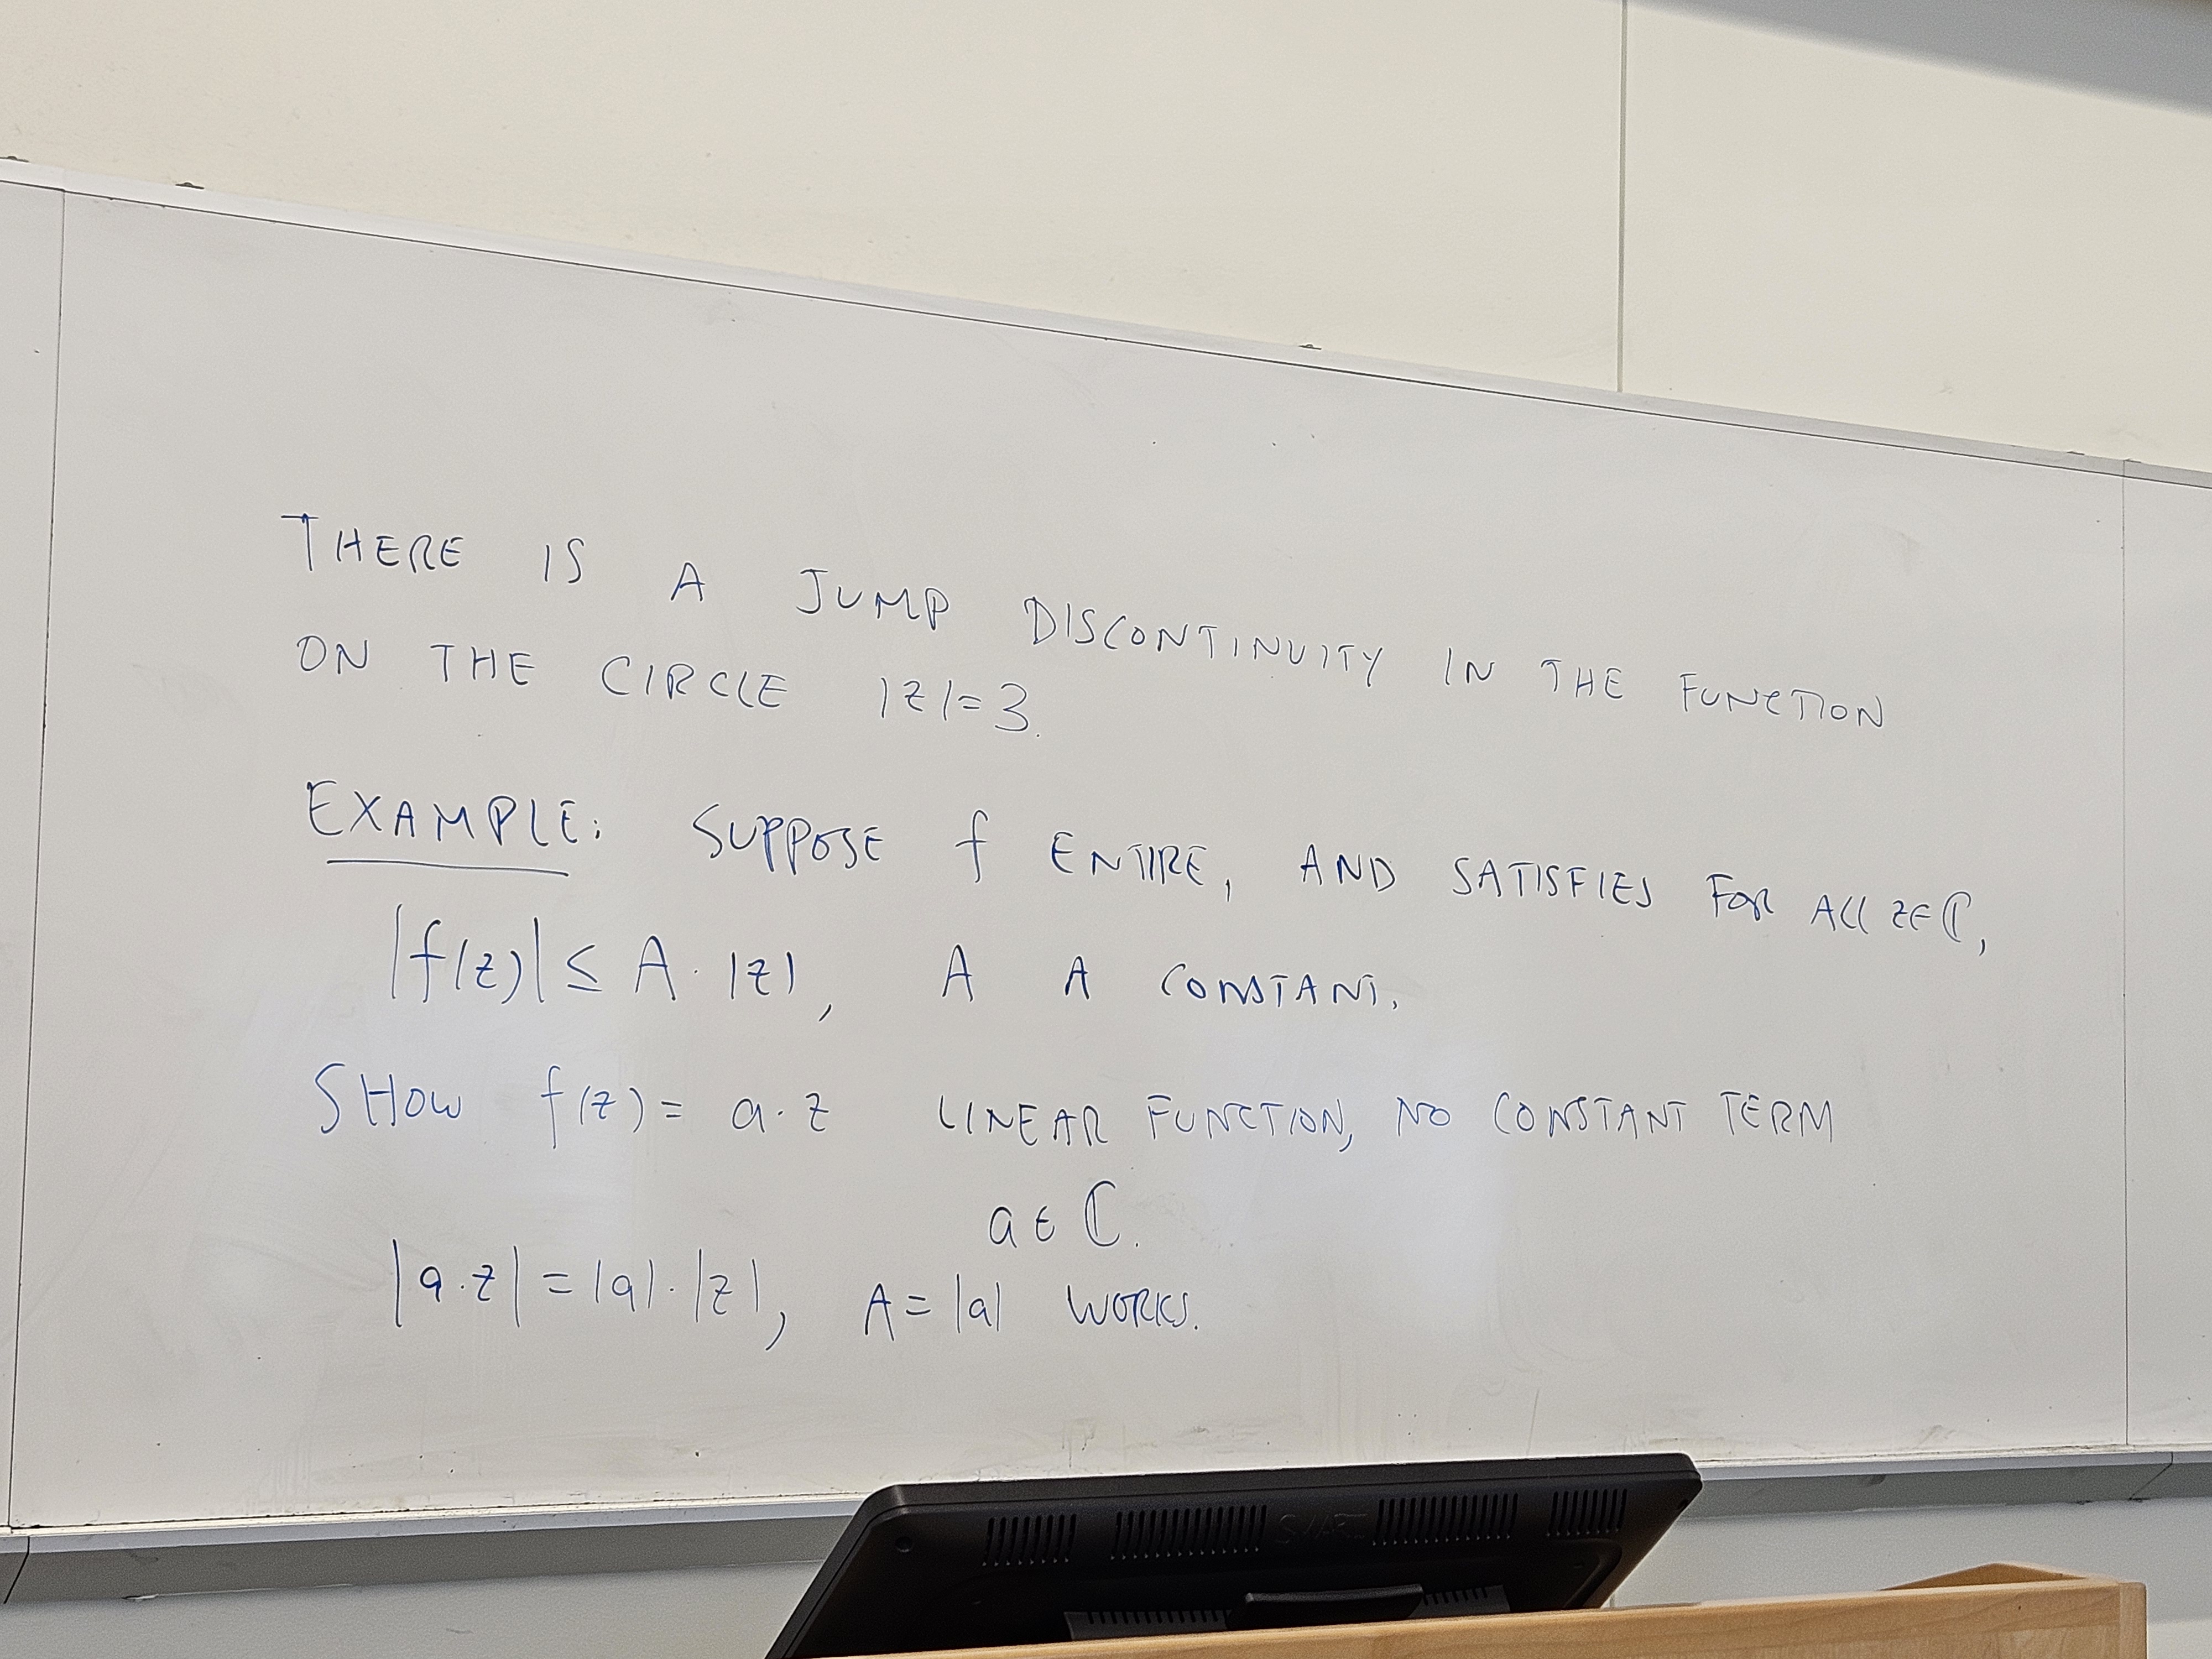 THERE IS A JUMP DISCONTINUITY IN THE FUNCTION
ON THE CIRCLE |z|=3.
EXAMPLE: SUPPOSE f ENTIRE, AND SATISFIES FOR ALL z∈ℂ,
|f(z)| ≤ A·|z|, A A CONSTANT.
SHOW f(z)= a·z LINEAR FUNCTION, NO CONSTANT TERM
a∈ℂ.
|a·z| = |a|·|z|, A=|a| WORKS.
SMART